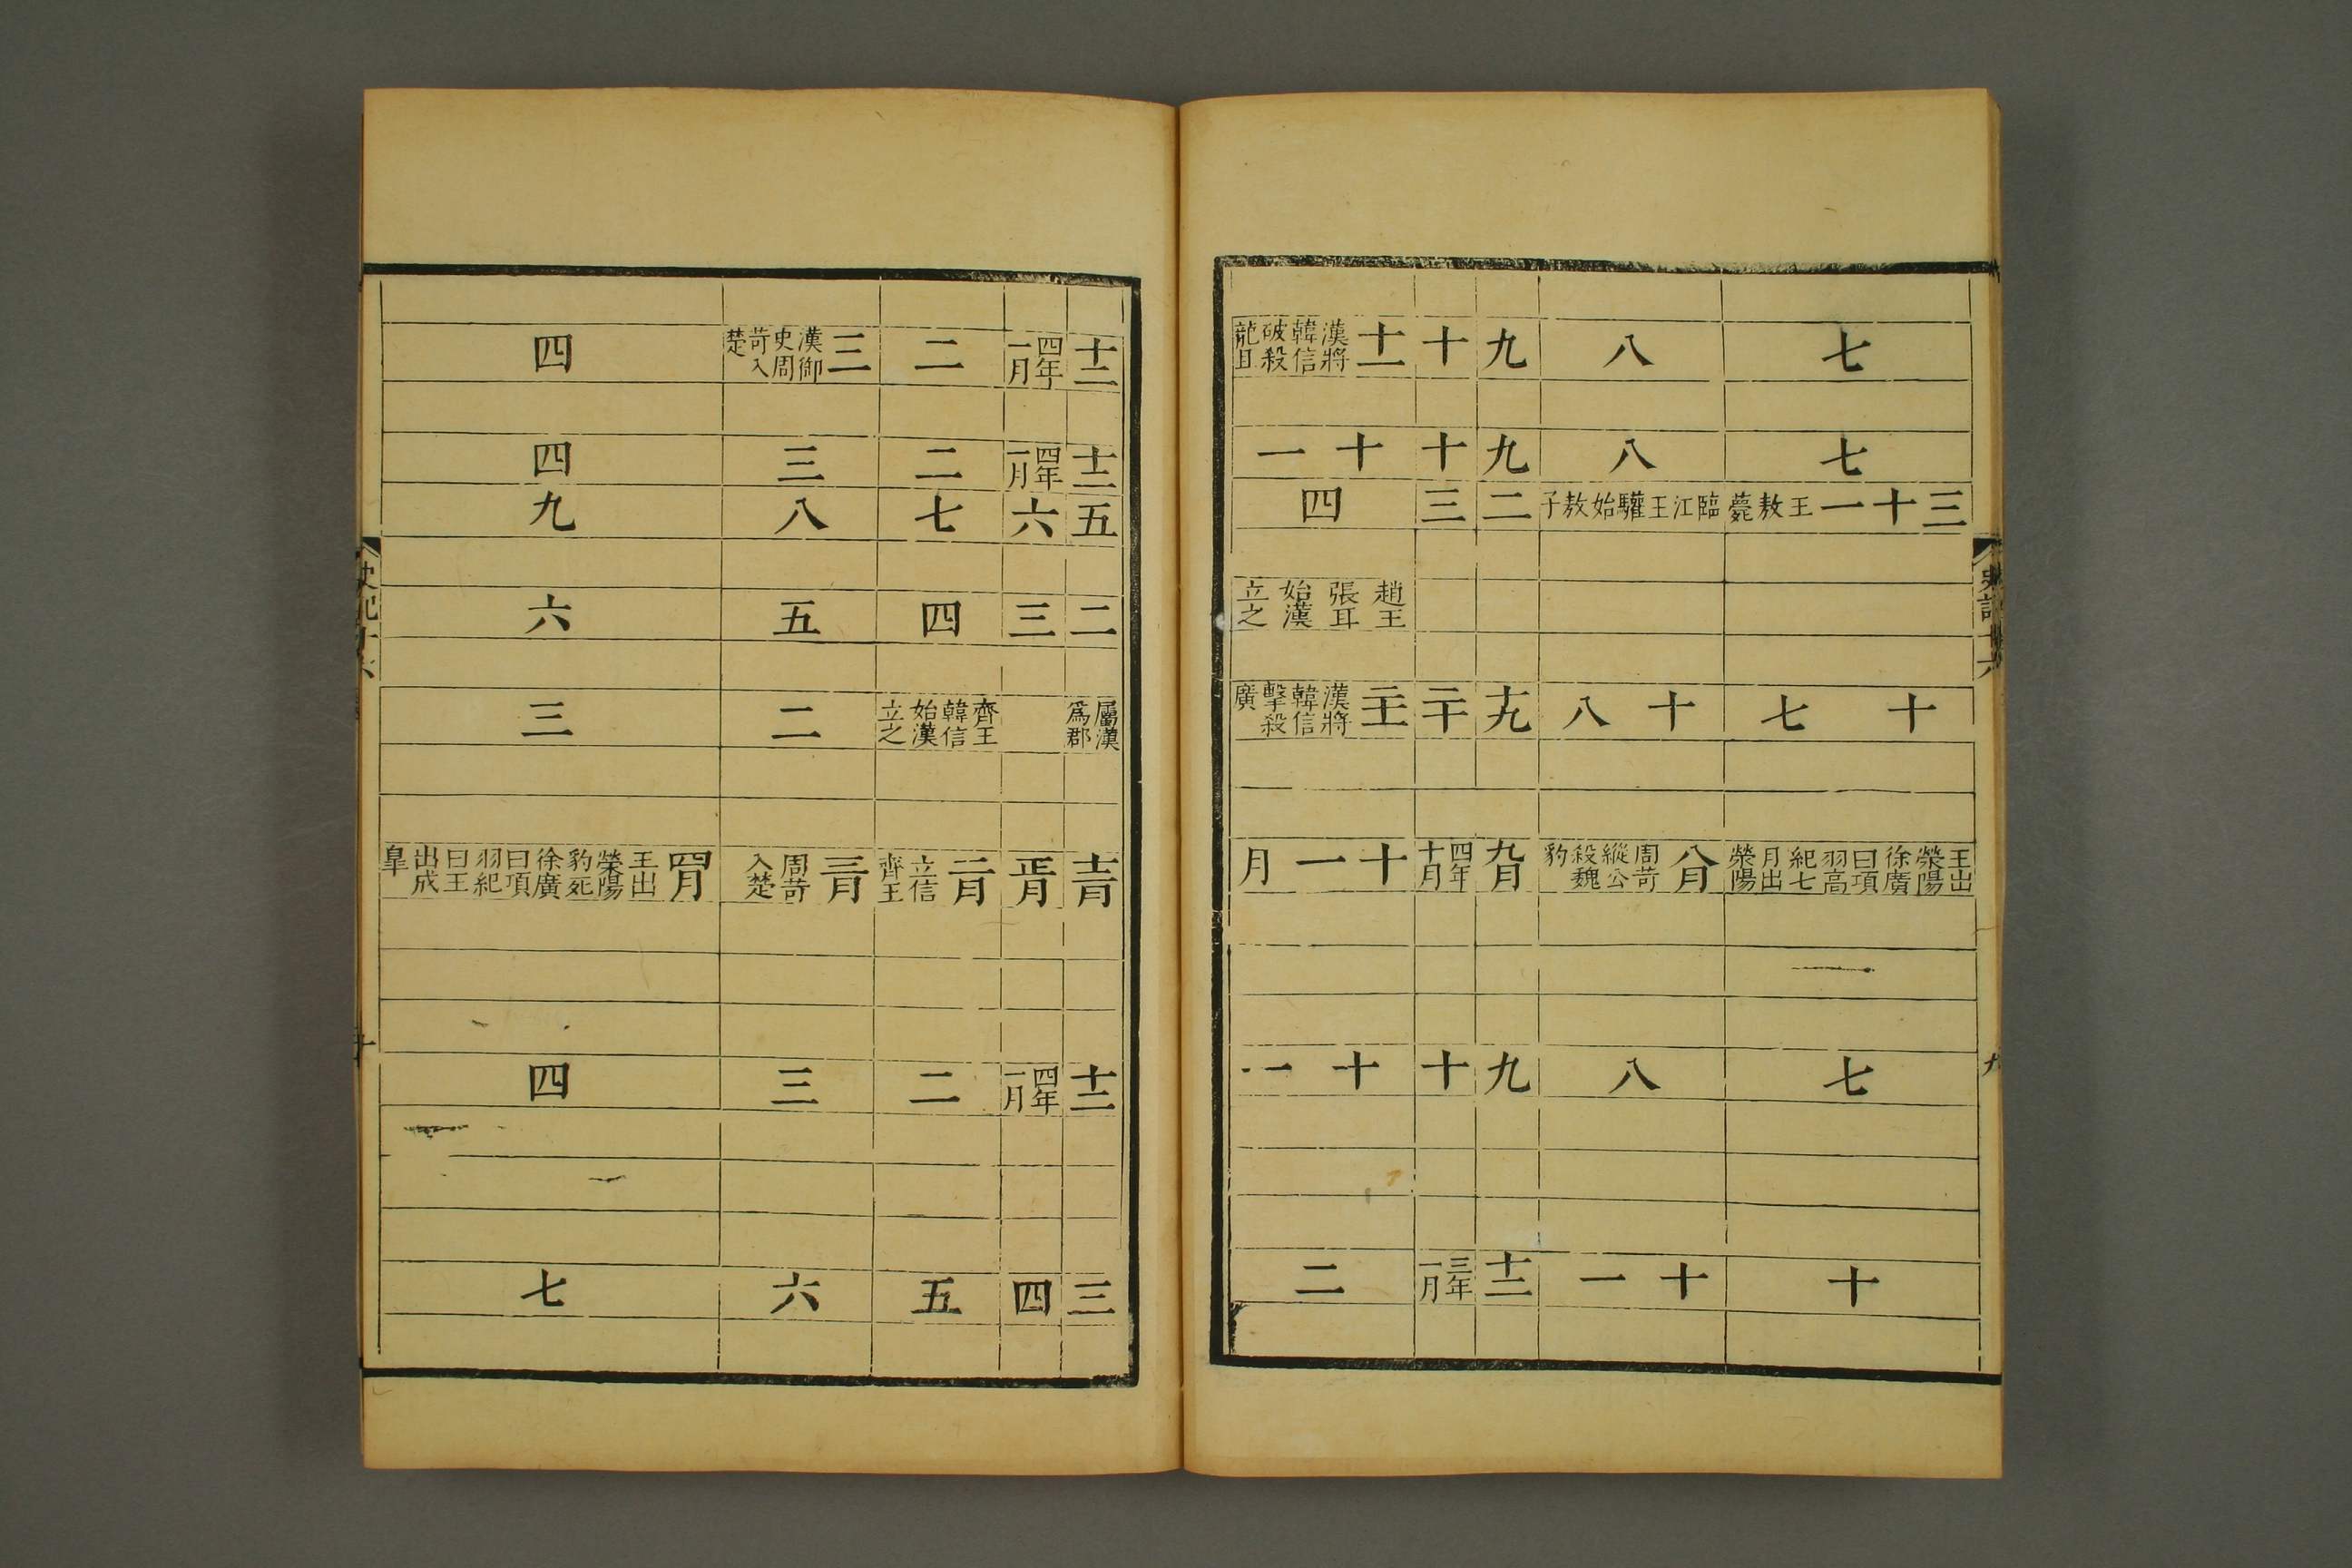 史記十六
九
七
七
三十一王敖薨
十七
王出滎陽徐廣曰項羽高紀七月出滎陽
七
十
八
八
臨江王驩始敖子
十八
八月周苛縱公殺魏豹
八
十一
九
九
二
十九
九月
九
十二
十
十
三
二十
四年十月
十
三年一月
十一漢將韓信破殺龍且
十一
四
趙王張耳始漢立之
二十一漢將韓信擊殺廣
十一月
十一
二
十二
十二
五
二
屬漢爲郡
十二月
十二
三
四年一月
四年一月
六
三
正月
四年一月
四
二
二
七
四
齊王韓信始漢立之
二月立信齊王
二
五
三漢御史周苛入楚
三
八
五
二
三月周苛入楚
三
六
四
四
九
六
三
四月王出滎陽豹死徐廣曰項羽紀曰王出成皐
四
七
史記十六
十